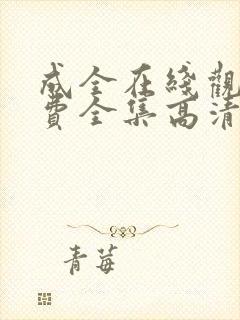 成全在綫觀
費全集高清
青莓